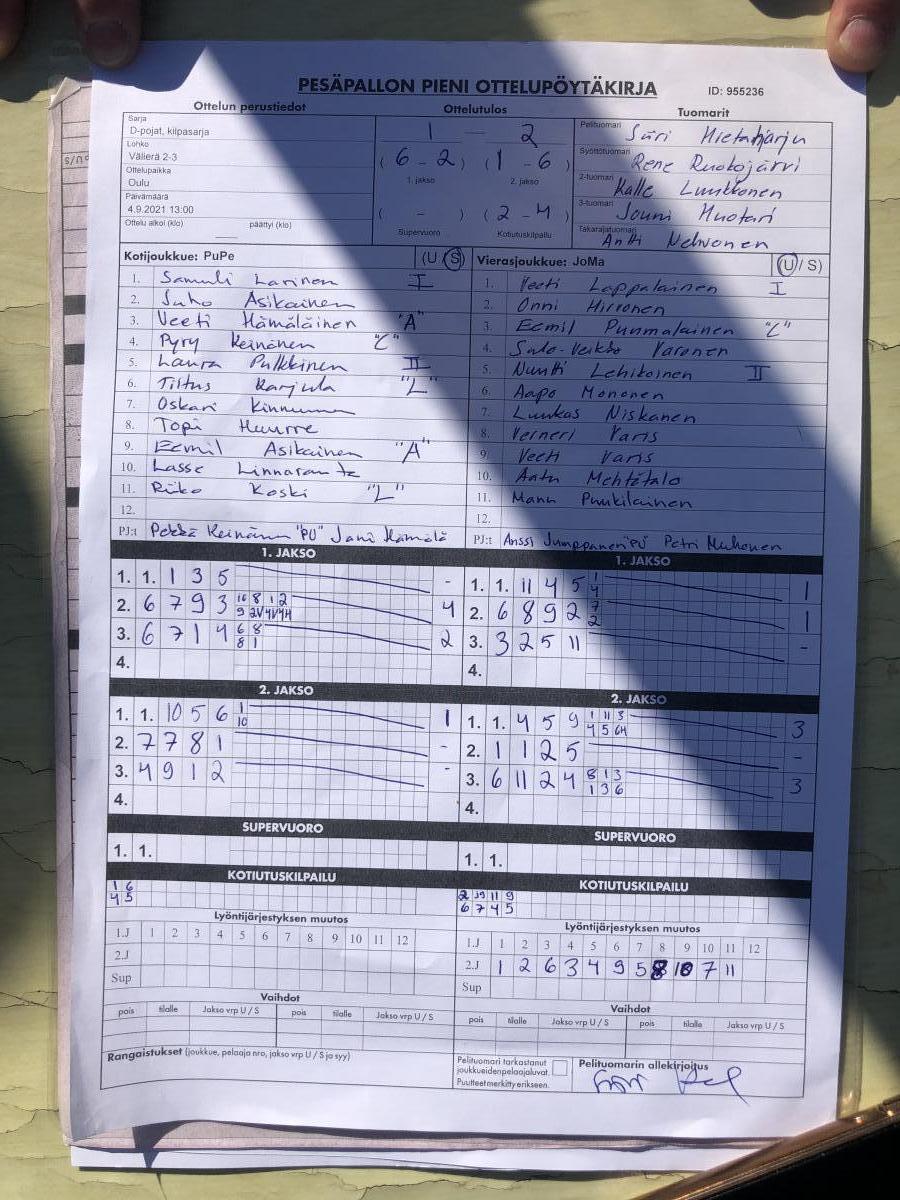 PESÄPALLON PIENI OTTELUPÖYTÄKIRJA
ID: 955236
Ottelun perustiedot
Sarja
D-pojat, kilpasarja
Lohko
Välierä 2-3
Ottelupaikka
Oulu
Päivämäärä
4.9.2021 13:00
Ottelu alkoi (klo) päättyi (klo)
Ottelutulos
1 — 2
( 6 - 2 ) ( 1 - 6 )
1. jakso 2. jakso
( - ) ( 2 - 4 )
Supervuoro Kotiutuskilpailu
Tuomarit
Pelituomari
Syöttötuomari Rene Ruokojärvi
2-tuomari Kalle Luukkonen
3-tuomari Jouni Huotari
Takarajatuomari
Antti Nehvonen
Kotijoukkue: PuPe (U / S)
1. Samuli Larinen I
2. Juho Asikainen
3. Veeti Hämäläinen "A"
4. Pyry Keinänen "C"
5. Laura Pulkkinen II
6. Tiitus Karjula "L"
7. Oskari Kinnunen
8. Topi Huurre
9. Eemil Asikainen "A"
10. Lasse Linnarantz
11. Riiko Koski "L"
12.
PJ:t Pekka Keinänen "PU" Jani Hämälä
Vierasjoukkue: JoMa (U / S)
1. Veeti Lappalainen I
2. Onni Hirvonen
3. Eemil Puumalainen "C"
4. Salo-Veikko Varonen
5. Nuutti Lehikoinen II
6. Aapo Mononen
7. Luukas Niskanen
8. Verneri Varis
9. Veeti Varis
10. Aatu Mehtätalo
11. Manu Puukilainen
12.
PJ:t Anssi Jumppanen "PU" Petri Muhonen
1. JAKSO
1. 1. 1 3 5 -
2. 6 7 9 3 10 8 1 2 4
9 2V 4V 4H
3. 6 7 1 4 6 8 2
8 1
4.
1. JAKSO
1. 1. 11 4 5 1 1
4
2. 6 8 9 2 7 1
2
3. 3 2 5 11 -
4.
2. JAKSO
1. 1. 10 5 6 1 1
10
2. 7 7 8 1 -
3. 4 9 1 2 -
4.
2. JAKSO
1. 1. 4 5 9 1 11 3 3
4 5 6H
2. 1 1 2 5 -
3. 6 11 2 4 8 1 3 3
1 3 6
4.
SUPERVUORO
1. 1.
SUPERVUORO
1. 1.
KOTIUTUSKILPAILU
1 6
4 5
KOTIUTUSKILPAILU
2 10 11 9
6 7 4 5
Lyöntijärjestyksen muutos
1.J 1 2 3 4 5 6 7 8 9 10 11 12
2.J
Sup
Lyöntijärjestyksen muutos
1.J 1 2 3 4 5 6 7 8 9 10 11 12
2.J 1 2 6 3 4 9 5 8 10 7 11
Sup
Vaihdot
pois tilalle Jakso vrp U / S pois tilalle Jakso vrp U / S
Vaihdot
pois tilalle Jakso vrp U / S pois tilalle Jakso vrp U / S
Rangaistukset (joukkue, pelaaja nro, jakso vrp U / S ja syy)
Pelituomari tarkastanut
joukkueiden pelaajaluvat.
Puutteet merkitty erikseen.
Pelituomarin allekirjoitus